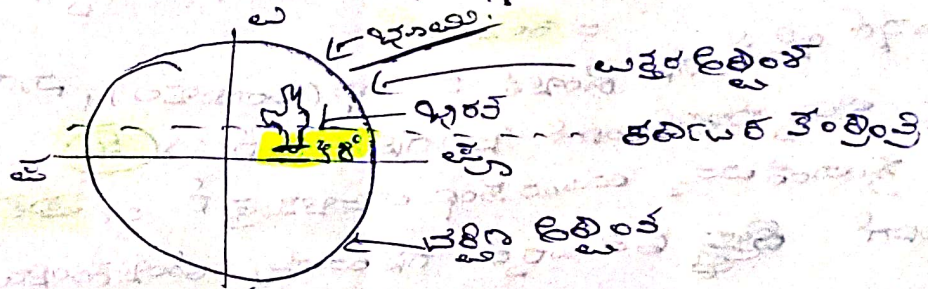 ಉ
ಭೂಮಿ.
ಉತ್ತರ ಅಕ್ಷಾಂಶ
ಭಾರತ
ಕರ್ಕಾಟಕ ಸಂಕ್ರಾಂತಿ
ಪ
ಪೂ
ದಕ್ಷಿಣ ಅಕ್ಷಾಂಶ